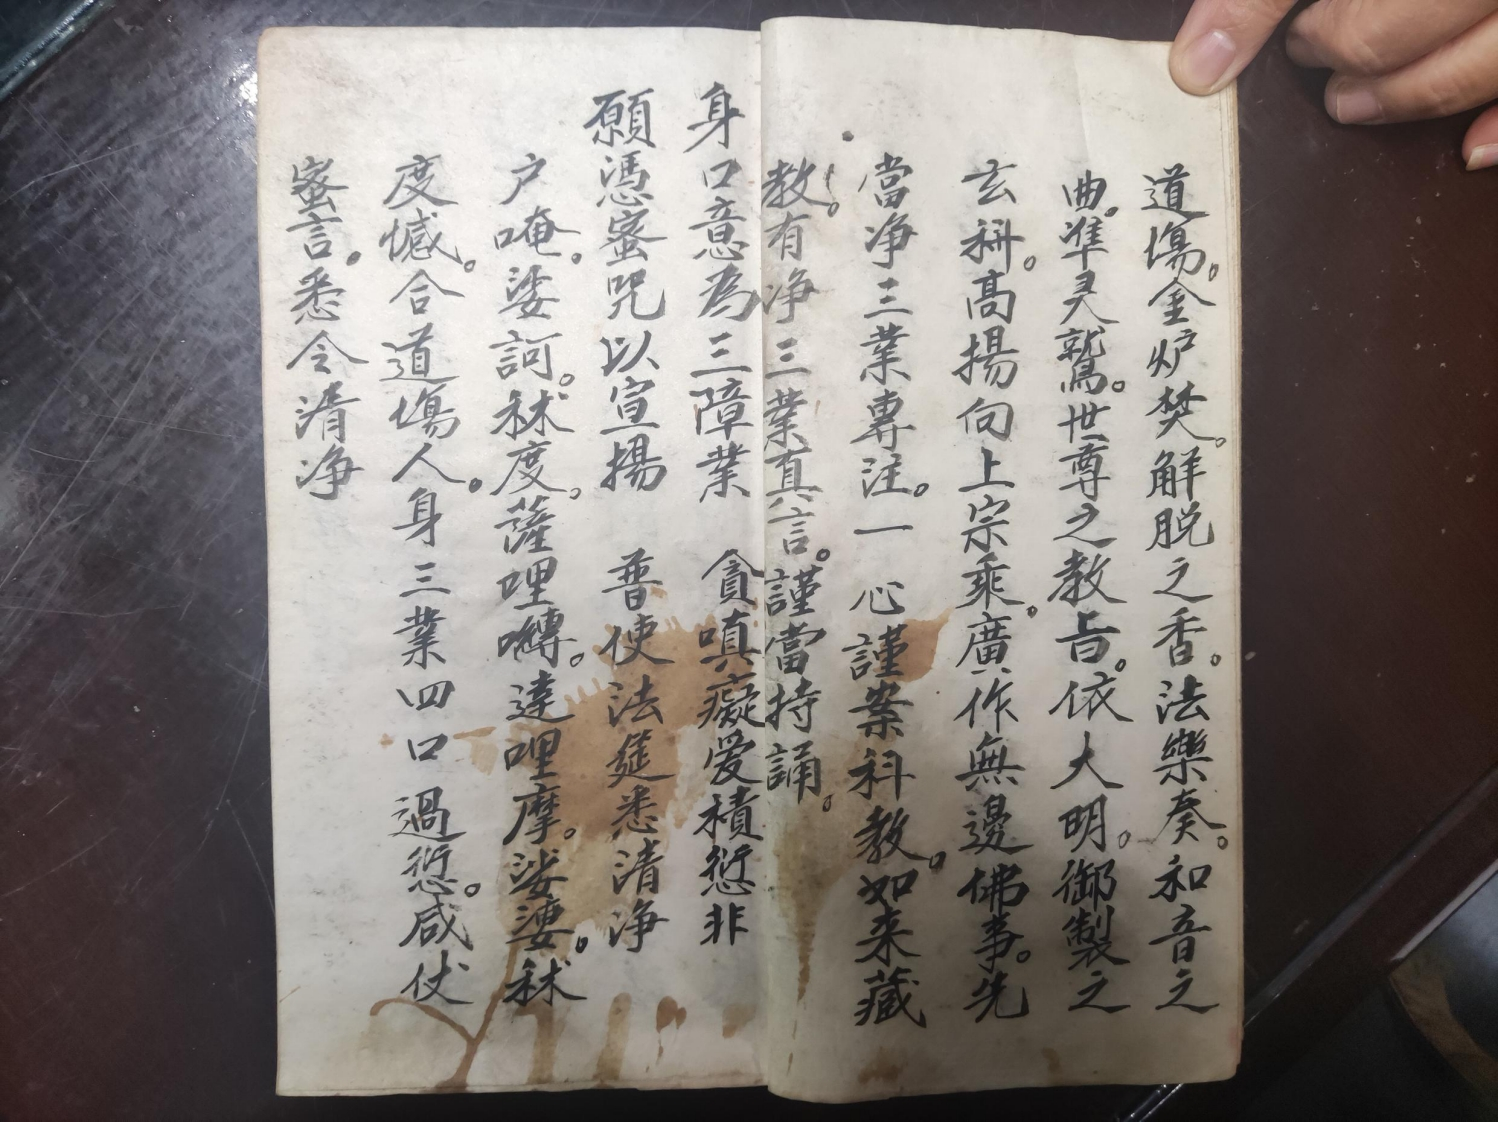 道場。金炉焚。解脱之香。法樂奏。和音之
曲。準灵鷲。世尊之教旨。依大明。御製之
玄科。高揚向上宗乘。廣作無邊佛事。先
當净三業專注。一心謹案科教。如来藏
教。有净三業真言。謹當持誦。
身口意為三障業　貪嗔癡愛積愆非
願憑宻咒以宣揚　普使法筵悉清净
户唵。娑訶。秫度。薩哩嚩。達哩摩。娑嚩。秫
度憾。合道場人。身三業四口過愆。咸仗
宻言。悉令清净